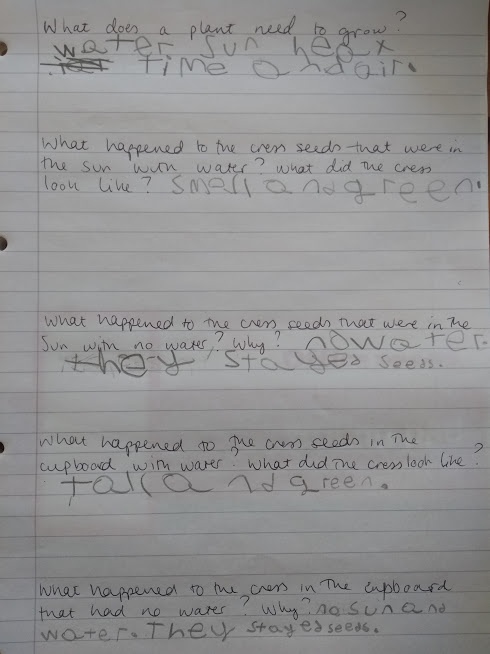 What does a plant need to grow?
water sun heat
time and air.
What happened to the cress seeds that were in
the sun with water? What did the cress
look like? smell and green.
What happened to the cress seeds that were in the
sun with no water? Why? no water.
they stayed seeds.
What happened to the cress seeds in the
cupboard with water? What did the cress look like?
tall and green.
What happened to the cress in the cupboard
that had no water? Why? no sun and
water. They stayed seeds.